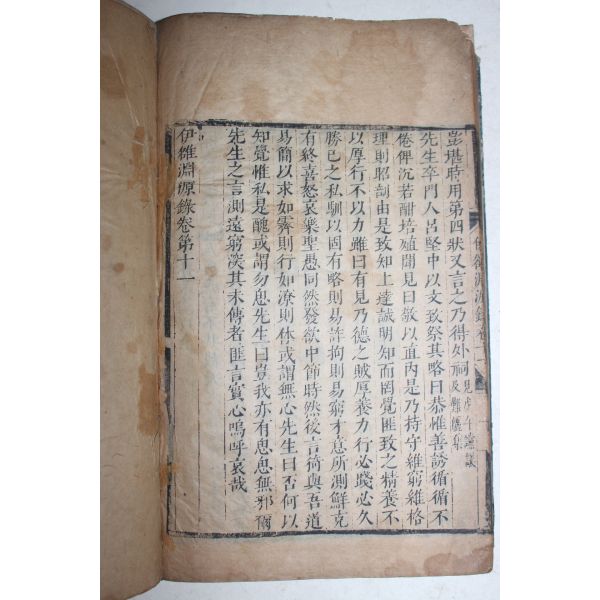 彭堪時用第四狀又言之乃得外祠見
先生卒門人呂堅中以文致祭其略曰恭惟善誘循循不
倦俾沉若酣培殖聞見曰敬以直內是乃持守維窮維格
理則昭剖由是致知上達誠明知而罔覺匪致之精養不
以厚行不以力雖曰有見乃德之賊厚養力行必踐必久
勝已之私馴以固有略則易詐拘則易窮才意所測鮮克
有終喜怒哀樂聖愚同然發欲中節時然後言猗與吾道
易簡以求如霽則行如潦則休或謂無心先生曰否何以
知覺惟私是醜或謂勿思先生曰豈我亦有思思無邪爾
先生之言測遠窮深其未傳者匪言實心嗚呼哀哉
伊雒淵源錄卷第十一